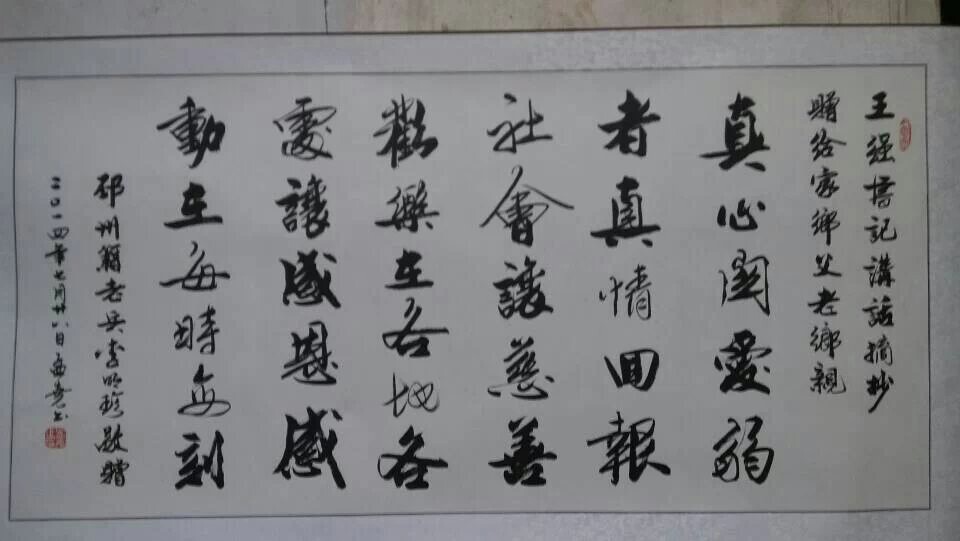 王强書記講話摘抄
贈给家鄉父老鄉親
真心関愛弱
者真情回報
社會讓慈善
歡樂在各地各
處讓感恩感
動在每時每刻
邳州籍老兵李明珍敬贈
二〇一四年七月廿八日